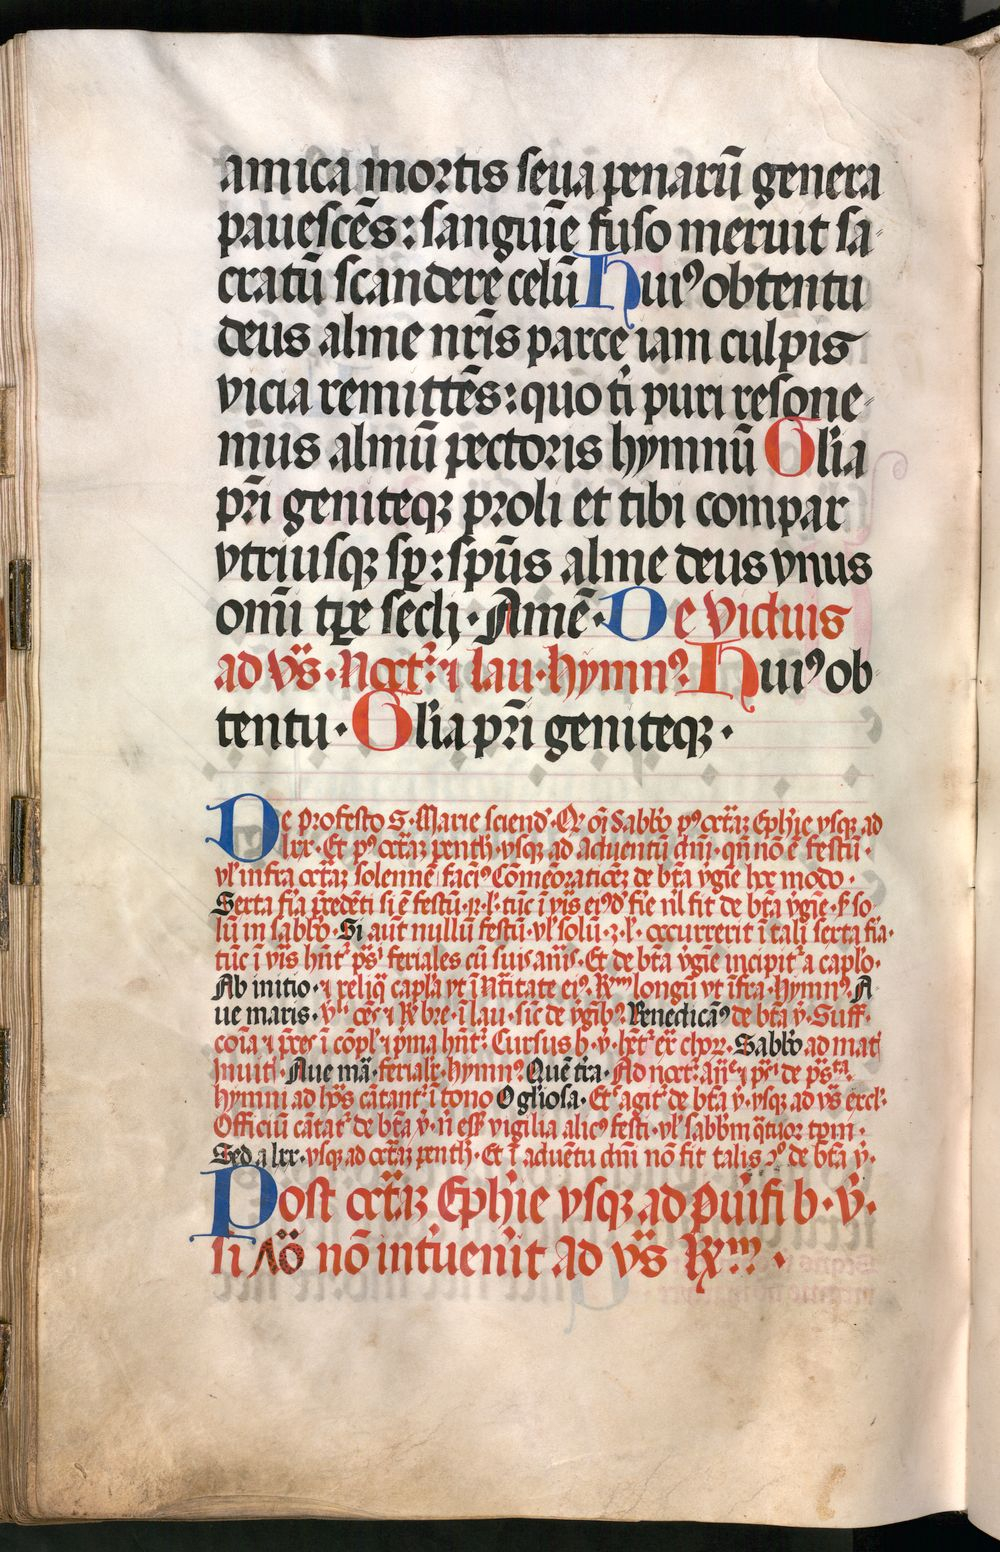 amica mortis seua penarū genera
pauescēs: sanguīe fuso meruit sa
cratū scandere celū Huiꝰ obtentu
deus alme nr̄is parce iam culpis
vicia remittēs: quo ti᷑ puri resone
mus almū pectoris hymnū Glīa
pr̄i geniteqꝫ proli et tibi compar
vtriusqꝫ sp̄: spūs alme deus vnus
om̄i tꝑe secli · Amē · De viduis
ad vs̄ · Noct᷑ ⁊ lau · hymnꝰ Huiꝰ ob
tentu · Glīa pr̄i geniteqꝫ ·
De profesto S · Marie sciend᷑ · Qꝛ oī Sabbō pꝰ octaꝫ Ephīe vsqꝫ ad
lxx · Et pꝰ octaꝫ penth᷑ · vsqꝫ ad aduentū dnī · qn̄ nō ē festū ·
vl᷑ infra octaꝫ solenne facīꝰ Cōmēoratōeꝫ de btā vgīe hoc modo ·
Sexta fīa p̄cedēti si ē festū · 2 · l᷑ · tūc ī vīs eiꝰd᷑ fīe nl᷑ fit de btā vgīe · s᷑ so
lū in sabbō · Si aūt nullū festū · vl᷑ solū · 3 · l᷑ · occurrerit ī tali sexta fīa ·
tūc ī vīs hn̄t᷑ ps᷑ feriales cū suis an̄is · Et de btā vgīe incipit᷑ a caplō ·
Ab initio · ⁊ reliq̄ capla vt ī Nātitate eiꝰ · ℟m longū vt īfra · Hymnꝰ A
ue maris · ce᷑s ⁊ ℟ bre · ī lau · sic᷑ de vgībꝰ · Benedicāꝰ de btā v᷑ · Suff᷑ ·
cōia ⁊ p̄ces ī copl᷑ ⁊ p̄ma hn̄t᷑ · Cursus b · v · Sabbō ad mat᷑
Inuit᷑ · Aue mā · ferialr᷑ · hymnꝰ Quē tr̄a · Ad noct᷑ de ps᷑
hymni ad hꝰs cātant᷑ ī tono O glīosa · Et agit᷑ de btā v᷑ · vsqꝫ ad vs̄ excl᷑ ·
Officiū cātat᷑ de btā v᷑ · vigilia alicꝰ festi · vl᷑ sabbm q̄tuor tp̄m ·
Sed a lxx · vsqꝫ ad octaꝫ penth᷑ · Et ī aduētu dnī nō fit talis de btā v᷑ ·
Post octaꝫ Ephīe vsqꝫ ad Pu᷑ifi b · v᷑ ·
si nō int᷑uen᷑it ad vs̄ ℟m ·